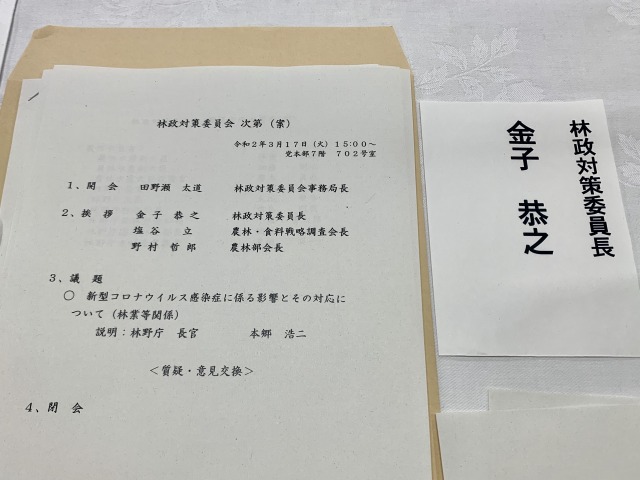 林政対策委員会 次第（案）
令和2年3月17日（火）15:00～
党本部7階 702号室
1、開 会 田野瀬 太道 林政対策委員会事務局長
2、挨 拶 金子 恭之 林政対策委員長
塩谷 立 農林・食料戦略調査会長
野村 哲郎 農林部会長
3、議 題
○ 新型コロナウイルス感染症に係る影響とその対応に
ついて（林業等関係）
説明：林野庁 長官 本郷 浩二
＜質疑・意見交換＞
4、閉 会
林政対策委員長
金子 恭之